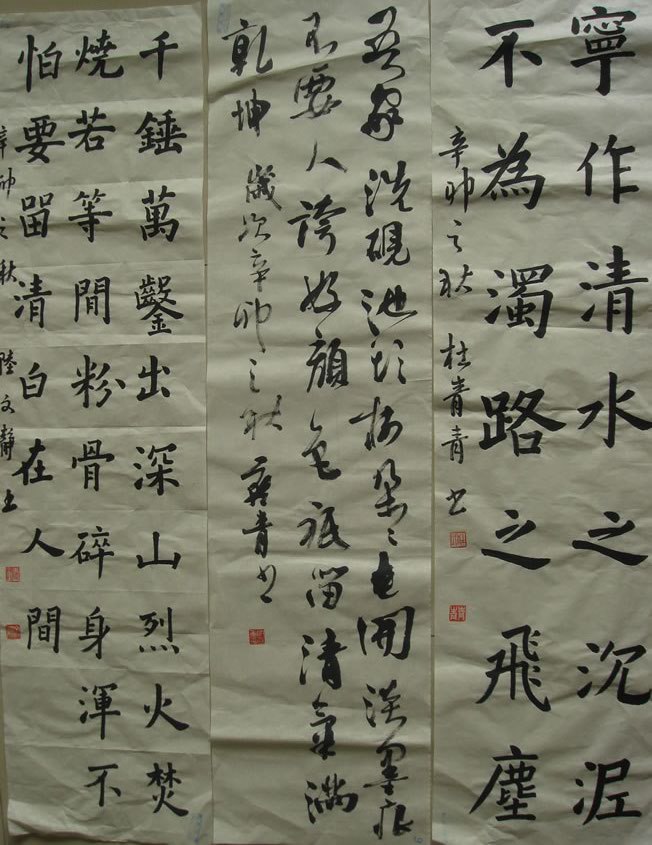 寧作清水之沉泥
不為濁路之飛塵
辛卯之秋 青青书
吾家洗硯池頭樹朵々花開淡墨痕
不要人誇好顏色祗留清氣滿
乾坤 歲次辛卯之秋 青书
千錘萬鑿出深山烈火焚
燒若等間粉骨碎身渾不
怕要畱清白在人間
辛卯之秋 陸文靜书